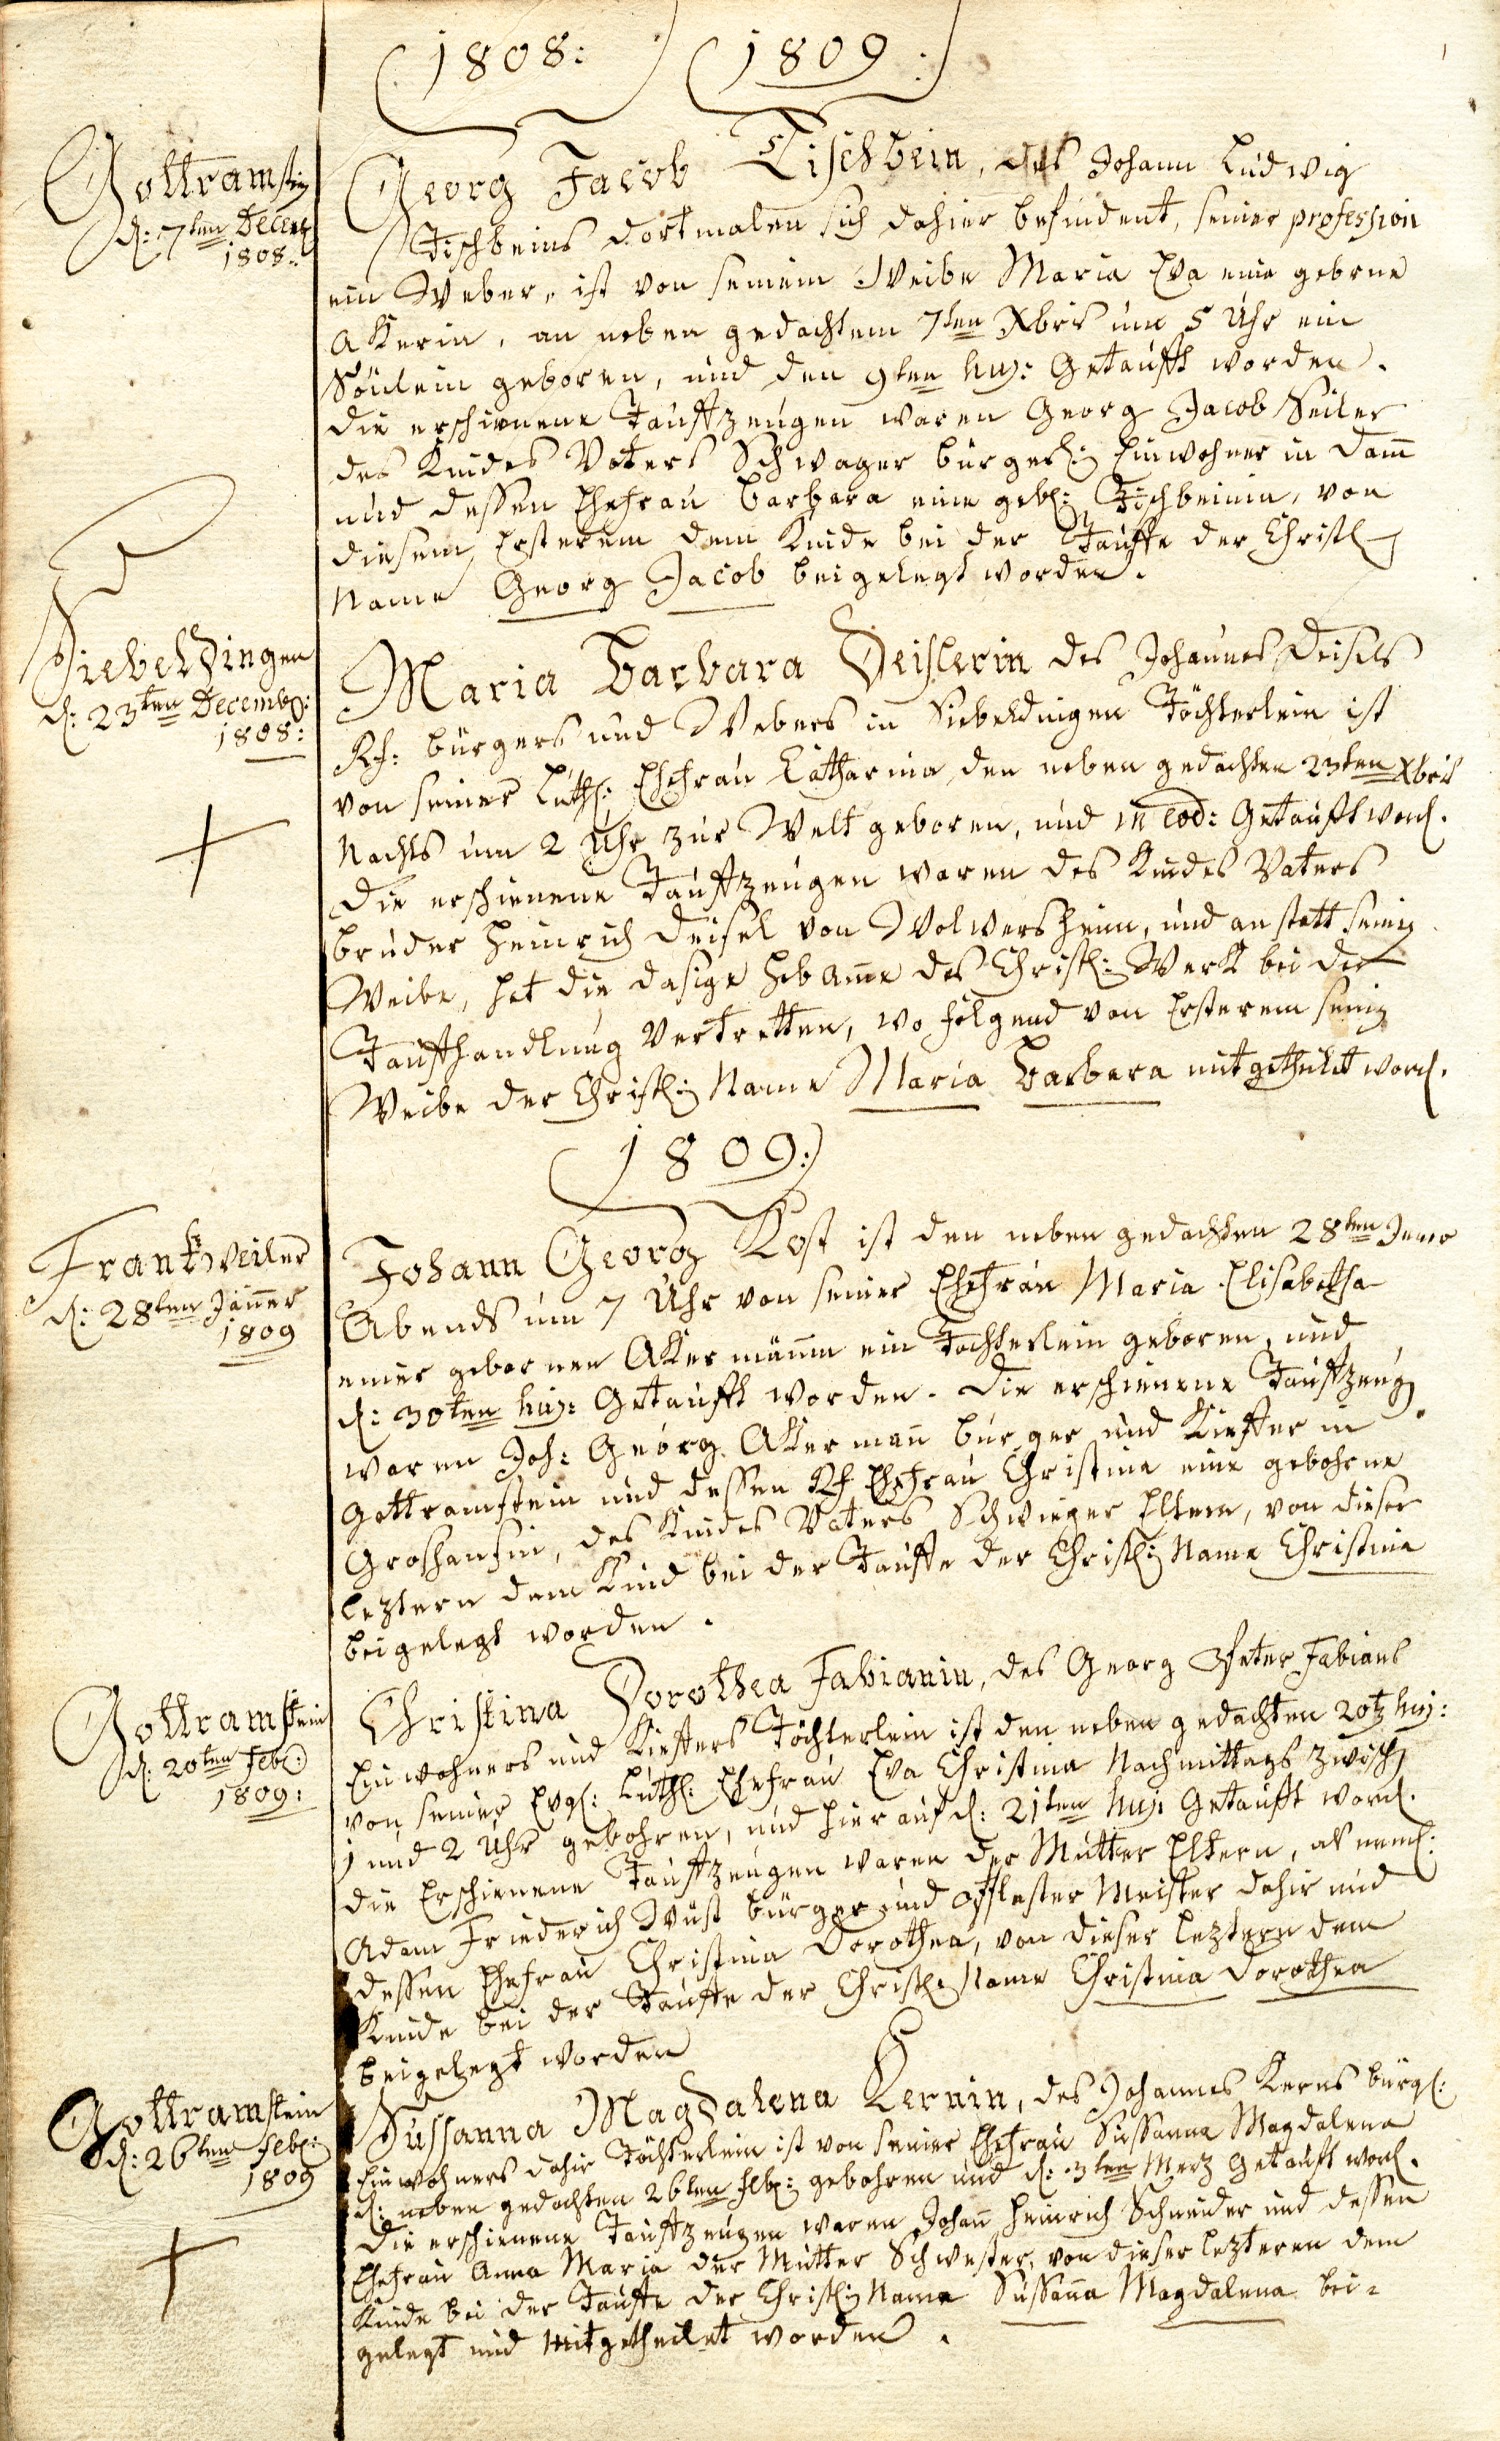 1808: 1809:
Gottramst:
d: 7ten Decem
1808.
Georg Jacob Tischbein, des Johann Ludwig
Tischbeins dortmalen sich dahier befindent, seiner profession
ein Weber, ist von seinem Weibe Maria Eva eine geborne
Akerin, an neben gedachtem 7ten Xbris um 5 Uhr ein
Sönlein geboren, und den 9ten huj: Getaufft worden.
Die erschienene Tauffzeugen waren Georg Jacob Seiler
des Kindes Vaters Schwager bürgerl: Einwohner in Dam̄
und dessen Ehefrau Barbara eine geb: Tischbeinin, von
diesem Ersterem dem Kinde bei der Tauffe der Christl:
Name Georg Jacob beigelegt worden.
Siebeldingen
d: 23ten Decemb:
1808:
Maria Barbara Deislerin des Johannes Deisels
Rf: bürgers und Webers in Siebeldingen Töchterlein ist
von seiner Luth: Ehefrau Catharina den neben gedachten 23ten Xbris
Nachts um 2 Uhr zur Welt geboren, und in eod: Getaufft word.
Die erschienene Tauffzeugen waren des Kindes Vaters
bruder Heinrich Deisel von Wolmersheim, und anstatt seines
Weibe, hat die dasige Hebam̄e das Christl: Werk bei der
Tauffhandlung Vertretten, wo folgend von Ersterem seinem
Weibe der Christl: Name Maria Barbara mitgetheilt word.
1809:
Frankweiler
d: 28ten Jan̄er
1809
Johann Georg Kost ist den neben gedachten 28ten Janro
Abends um 7 Uhr von seiner Ehefrau Maria Elisabetha
einer gebornen Akermännin ein Tochterlein geboren, und
d: 30ten huj: Getaufft worden. Die erschienene Tauffzeug
waren Joh: Georg Akerman̄ bürger und Kieffer in
Gottramstein und dessen Rf Ehefrau Christina eine gebohrne
Groshansin, des Kindes Vaters Schwieger Eltern, von dieser
leztern dem Kind bei der Tauffe der Christl: Name Christina
beigelegt worden.
Gottramstein
d: 20ten Feb:
1809:
Christina Dorothea Fabianin, des Georg Peter Fabians
Einwohners und Kieffers Töchterlein ist den neben gedachten 20t huj:
von seiner Evgl: Luth: Ehefrau Eva Christina Nachmittags zwisch
1 und 2 Uhr gebohren, und hierauf d: 21ten huj: Getaufft word.
die Erschienene Tauffzeugen waren der Mutter Eltern, als neml:
Adam Friederich Wüst bürger und Pflaster Meister dahir und
dessen Ehefrau Christina Dorothea, von dieser leztern dem
Kinde bei der Tauffe der Christl: Name Christina Dorothea
beigelegt worden
Gottramstein
d: 26ten Feb:
1809
Sussanna Magdalena Kernin, des Johannes Kerns bürgl:
Einwohners dahir Töchterlein ist von seiner Ehefrau Sussanna Magdalena
d: neben gedachten 26ten Feb: gebohren und d: 3ten Merz Getaufft word.
Die erschienene Tauffzeugen waren Johan̄ Heinrich Schneider und dessen
Ehefrau Anna Maria der Mutter Schwester, von dieser lezteren dem
Kinde bei der Tauffe der Christl: Name Sussan̄a Magdalena bei=
gelegt und mitgetheilet worden.